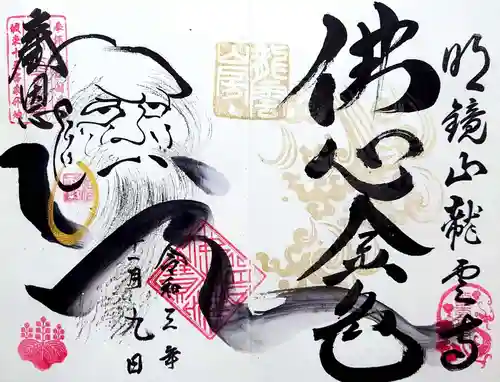 明鏡山龍雲寺
佛心金色
感恩
令和三年
十一月九日